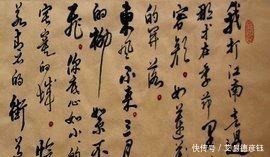 我打江南走过
那等在季节里
容颜如莲花
的开落
东风不来三月
的柳絮不
飞 你底心如小小
的城
若青石的街
快传号